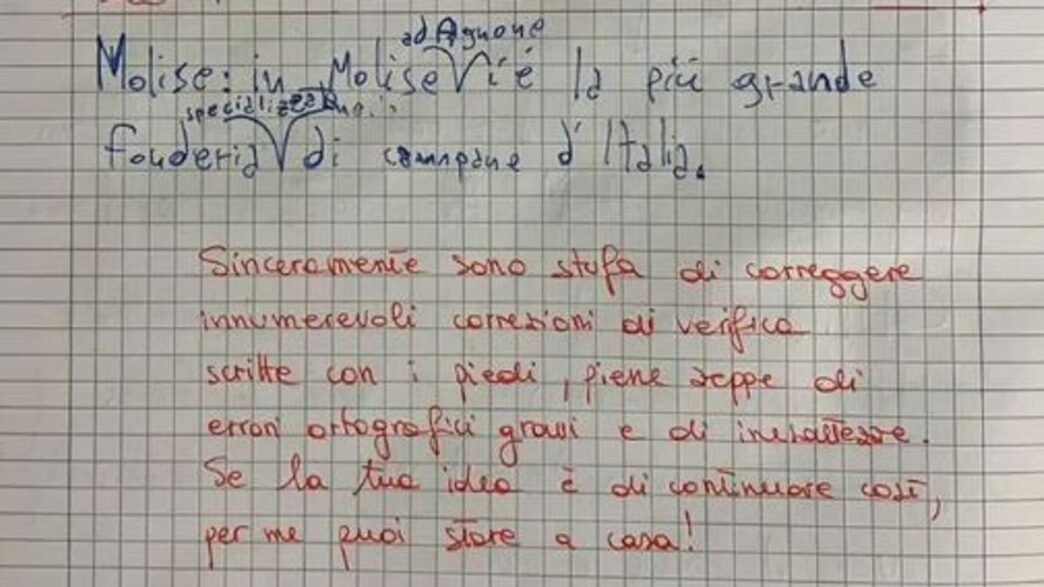 ad Agnone
Molise: in Molise V i'è la più grande
specializzata
fonderia V di campane d'Italia.
Sinceramente sono stufa di correggere
innumerevoli correzioni di verifica
scritte con i piedi, piene zeppe di
errori ortografici gravi e di inesattezze.
Se la tua idea è di continuare così,
per me puoi stare a casa!